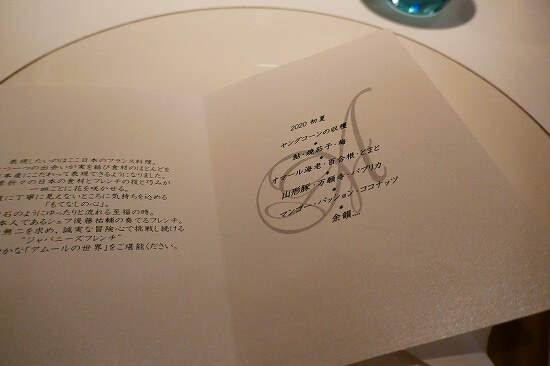 表現したいのはここ日本のフランス料理。
一つ一つの出会いが実を結び食材のほとんどを
日本産にこだわって表現できるようになりました。
季折々の日本の食材とフレンチの技と巧みが
一皿ごとに花を咲かせる。
に丁寧に見えないところに気持ちを込める
「もてなしの心」。
石のようにゆったりと流れる至福の時。
本人であるシェフ後藤祐輔の奏でるフレンチ。
無二を求め、誠実な冒険心で挑戦し続ける
"ジャパニーズフレンチ"
やかな「アムールの世界」をご堪能ください。
2020 初夏
ヤングコーンの収穫
鮎・焼茄子・梅
オマール海老・百合根・とまと
山形豚・万願寺・パプリカ
マンゴー・パッション・ココナッツ
余韻...